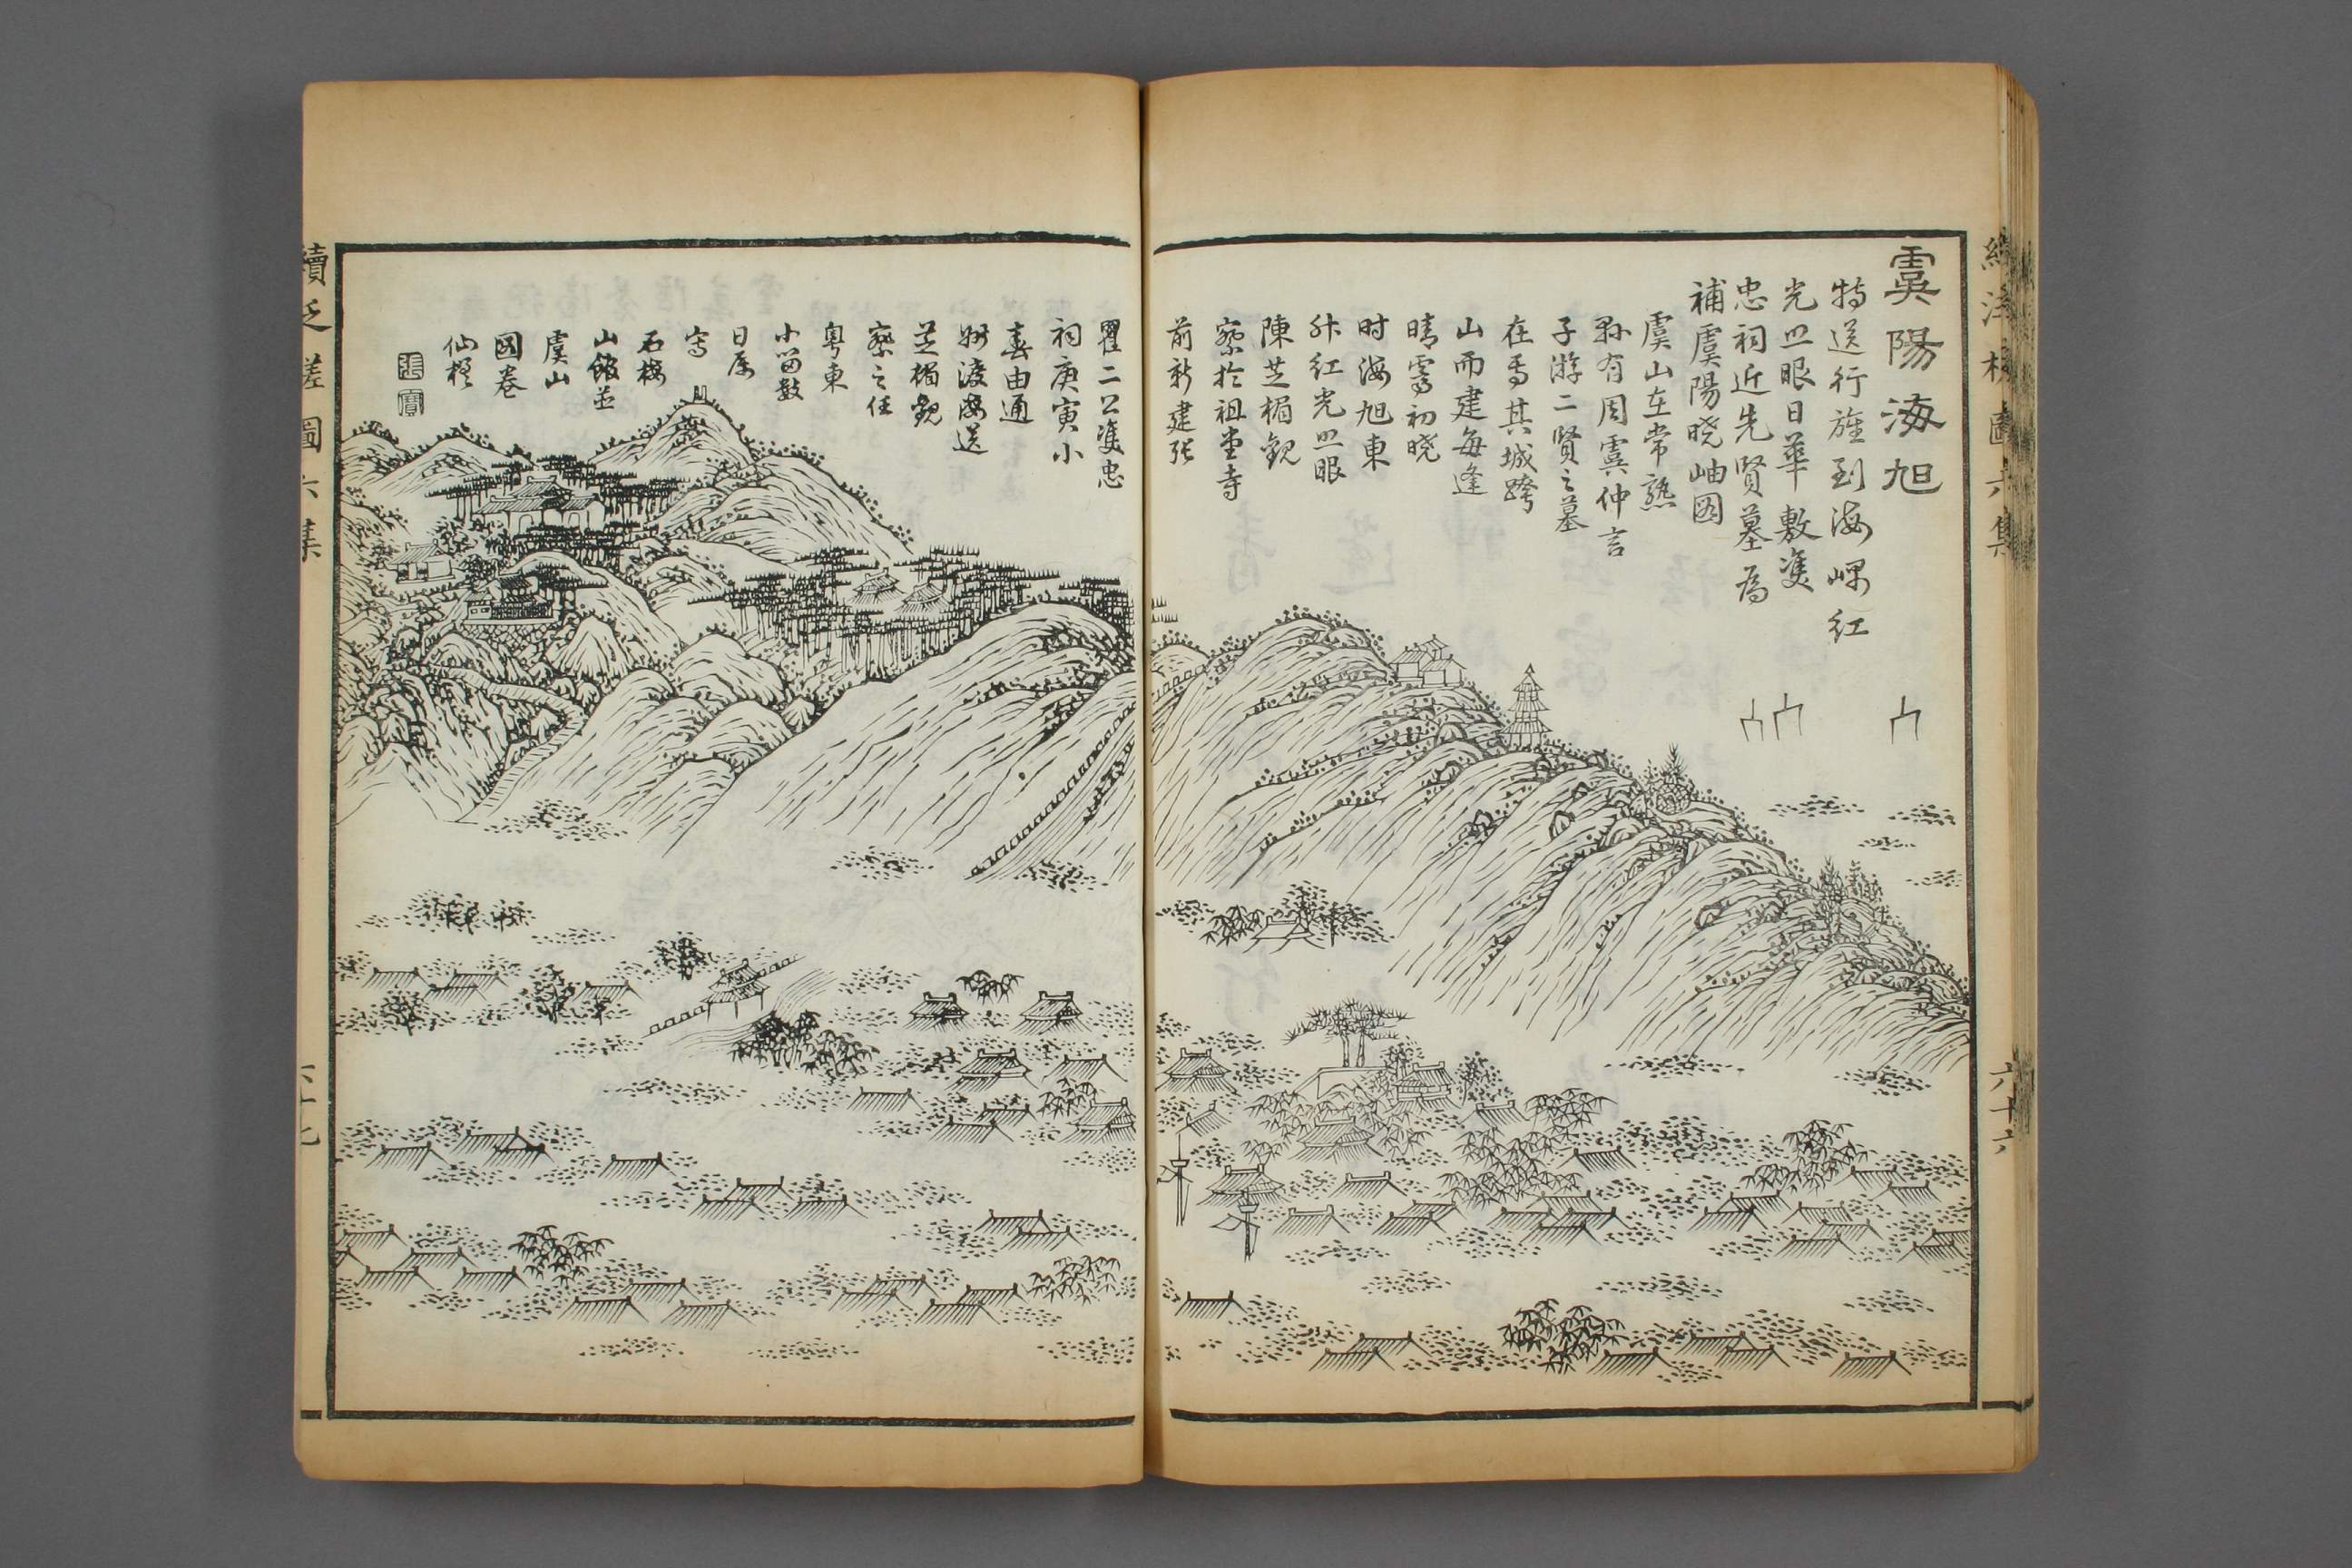 虞陽海旭
特送行旌到海嵎紅
光照眼日華敷雙
忠祠近先賢墓為
補虞陽曉岫图
虞山在常熟
縣有周虞仲言
子游二賢之墓
在焉其城跨
山而建每逢
晴霽初曉
时海旭東
升紅光照眼
陳芝楣觀
察於祖堂寺
前新建張
瞿二公雙忠
祠庚寅小
春由通
州渡海送
芝楣觀
察之任
粤東
小留数
日属
寫
石梅
山館並
虞山
図卷
仙槎
張寶
續泛槎圖六集
六十六
續泛槎圖六集
六十七